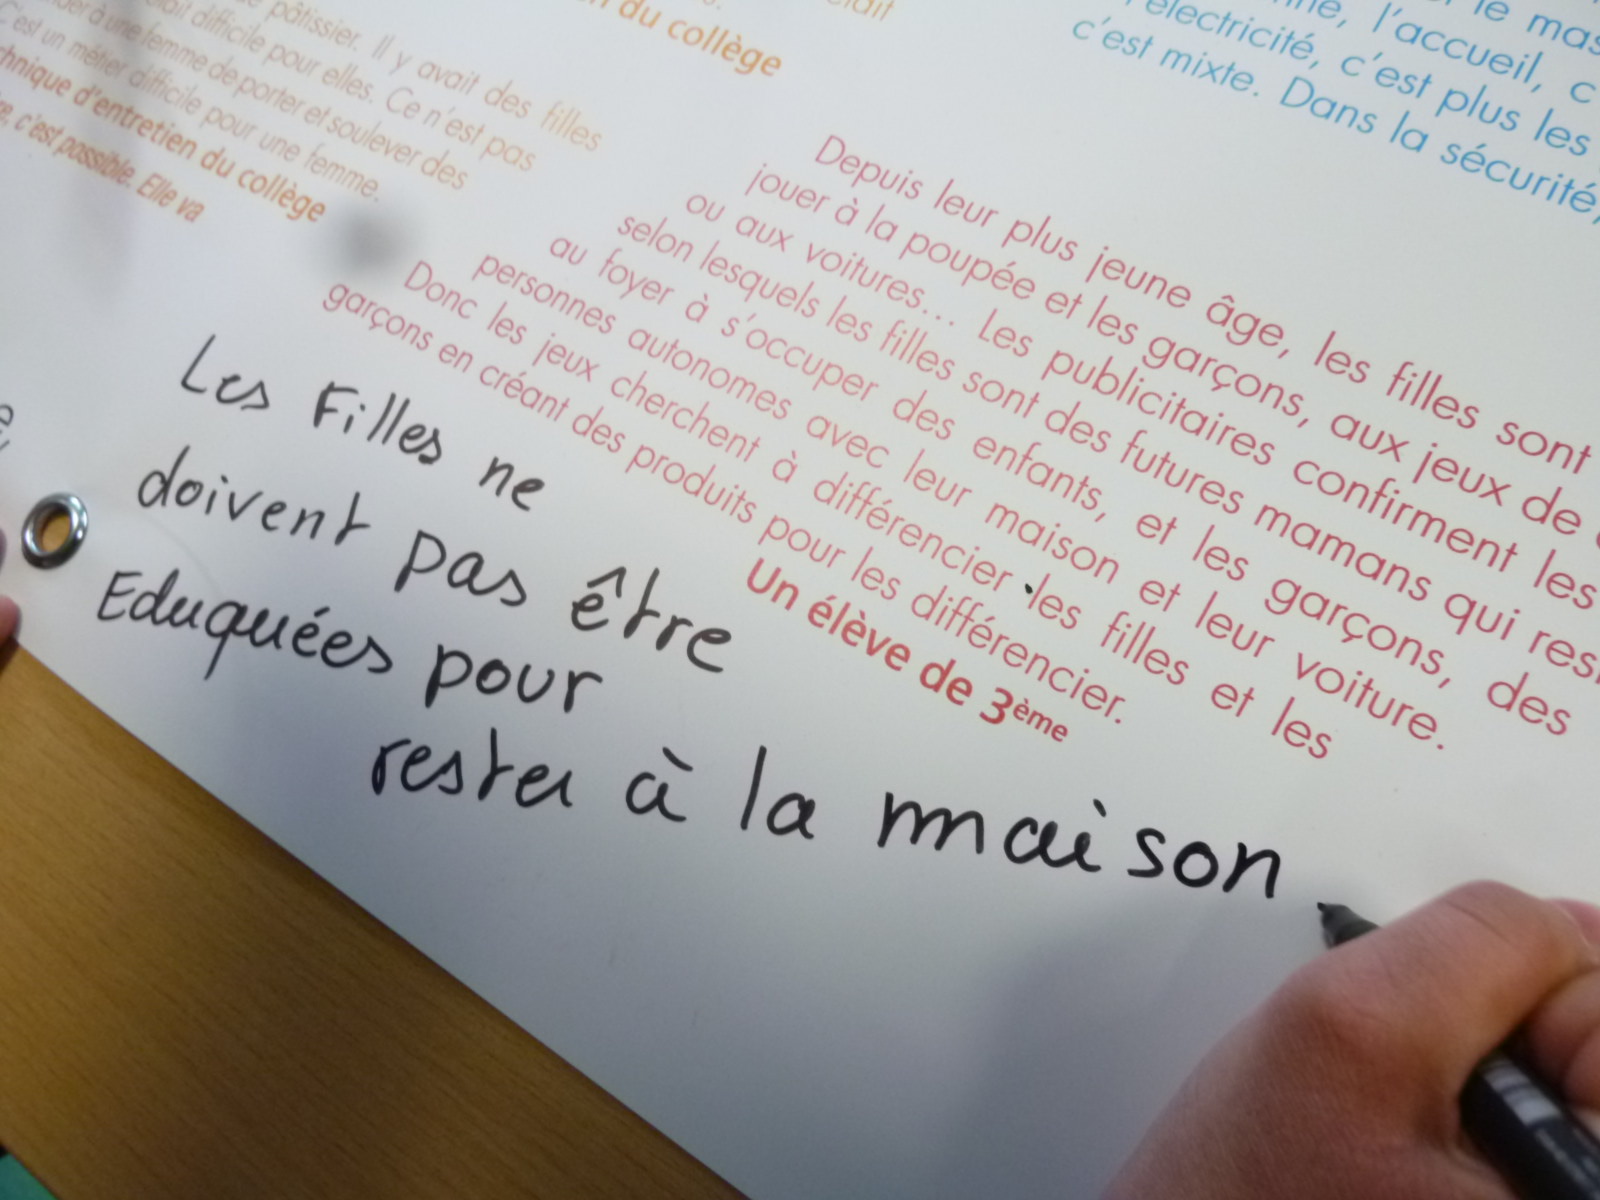 pâtissier. Il y avait des filles
difficile pour elles. Ce n'est pas
à une femme de porter et soulever des
C'est un métier difficile pour une femme.
d'entretien du collège
c'est possible. Elle va
du collège
le mas
l'accueil, c
électricité, c'est plus les
c'est mixte. Dans la sécurité,
Depuis leur plus jeune âge, les filles sont
jouer à la poupée et les garçons, aux jeux de
ou aux voitures... Les publicitaires confirment les
selon lesquels les filles sont des futures mamans qui res
au foyer à s'occuper des enfants, et les garçons, des
personnes autonomes avec leur maison et leur voiture.
Donc les jeux cherchent à différencier les filles et les
garçons en créant des produits pour les différencier.
Un élève de 3ème
Les Filles ne
doivent pas être
Eduquées pour
rester à la maison